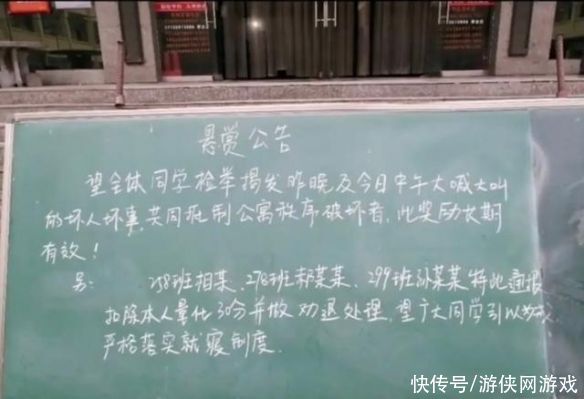 悬赏公告
望全体同学检举揭发昨晚及今日中午大喊大叫
的坏人坏事，共同抵制公寓秩序破坏者，此奖励长期
有效！
另： 258班相某、278班郝某某、299班孙某某特此通报
扣除本人量化30分并做劝退处理，望广大同学引以为戒，
严格落实就寝制度．
快传号/游侠网游戏